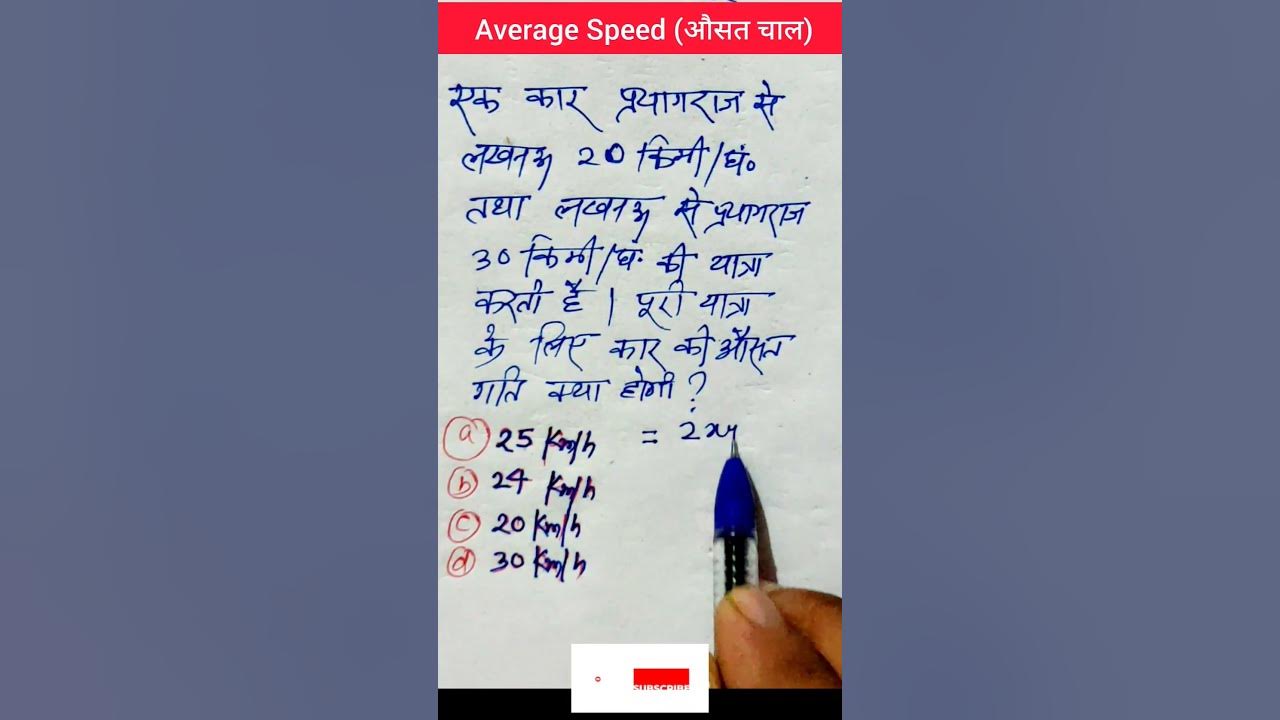 Average Speed (औसत चाल)
एक कार प्रयागराज से
लखनऊ 20 किमी/घं०
तथा लखनऊ से प्रयागराज
30 किमी/घं. की यात्रा
करती है | पूरी यात्रा
के लिए कार की औसत
गति क्या होगी ?
(a) 25 Km/h = 2xy
(b) 24 Km/h
(c) 20 Km/h
(d) 30 Km/h
SUBSCRIBE